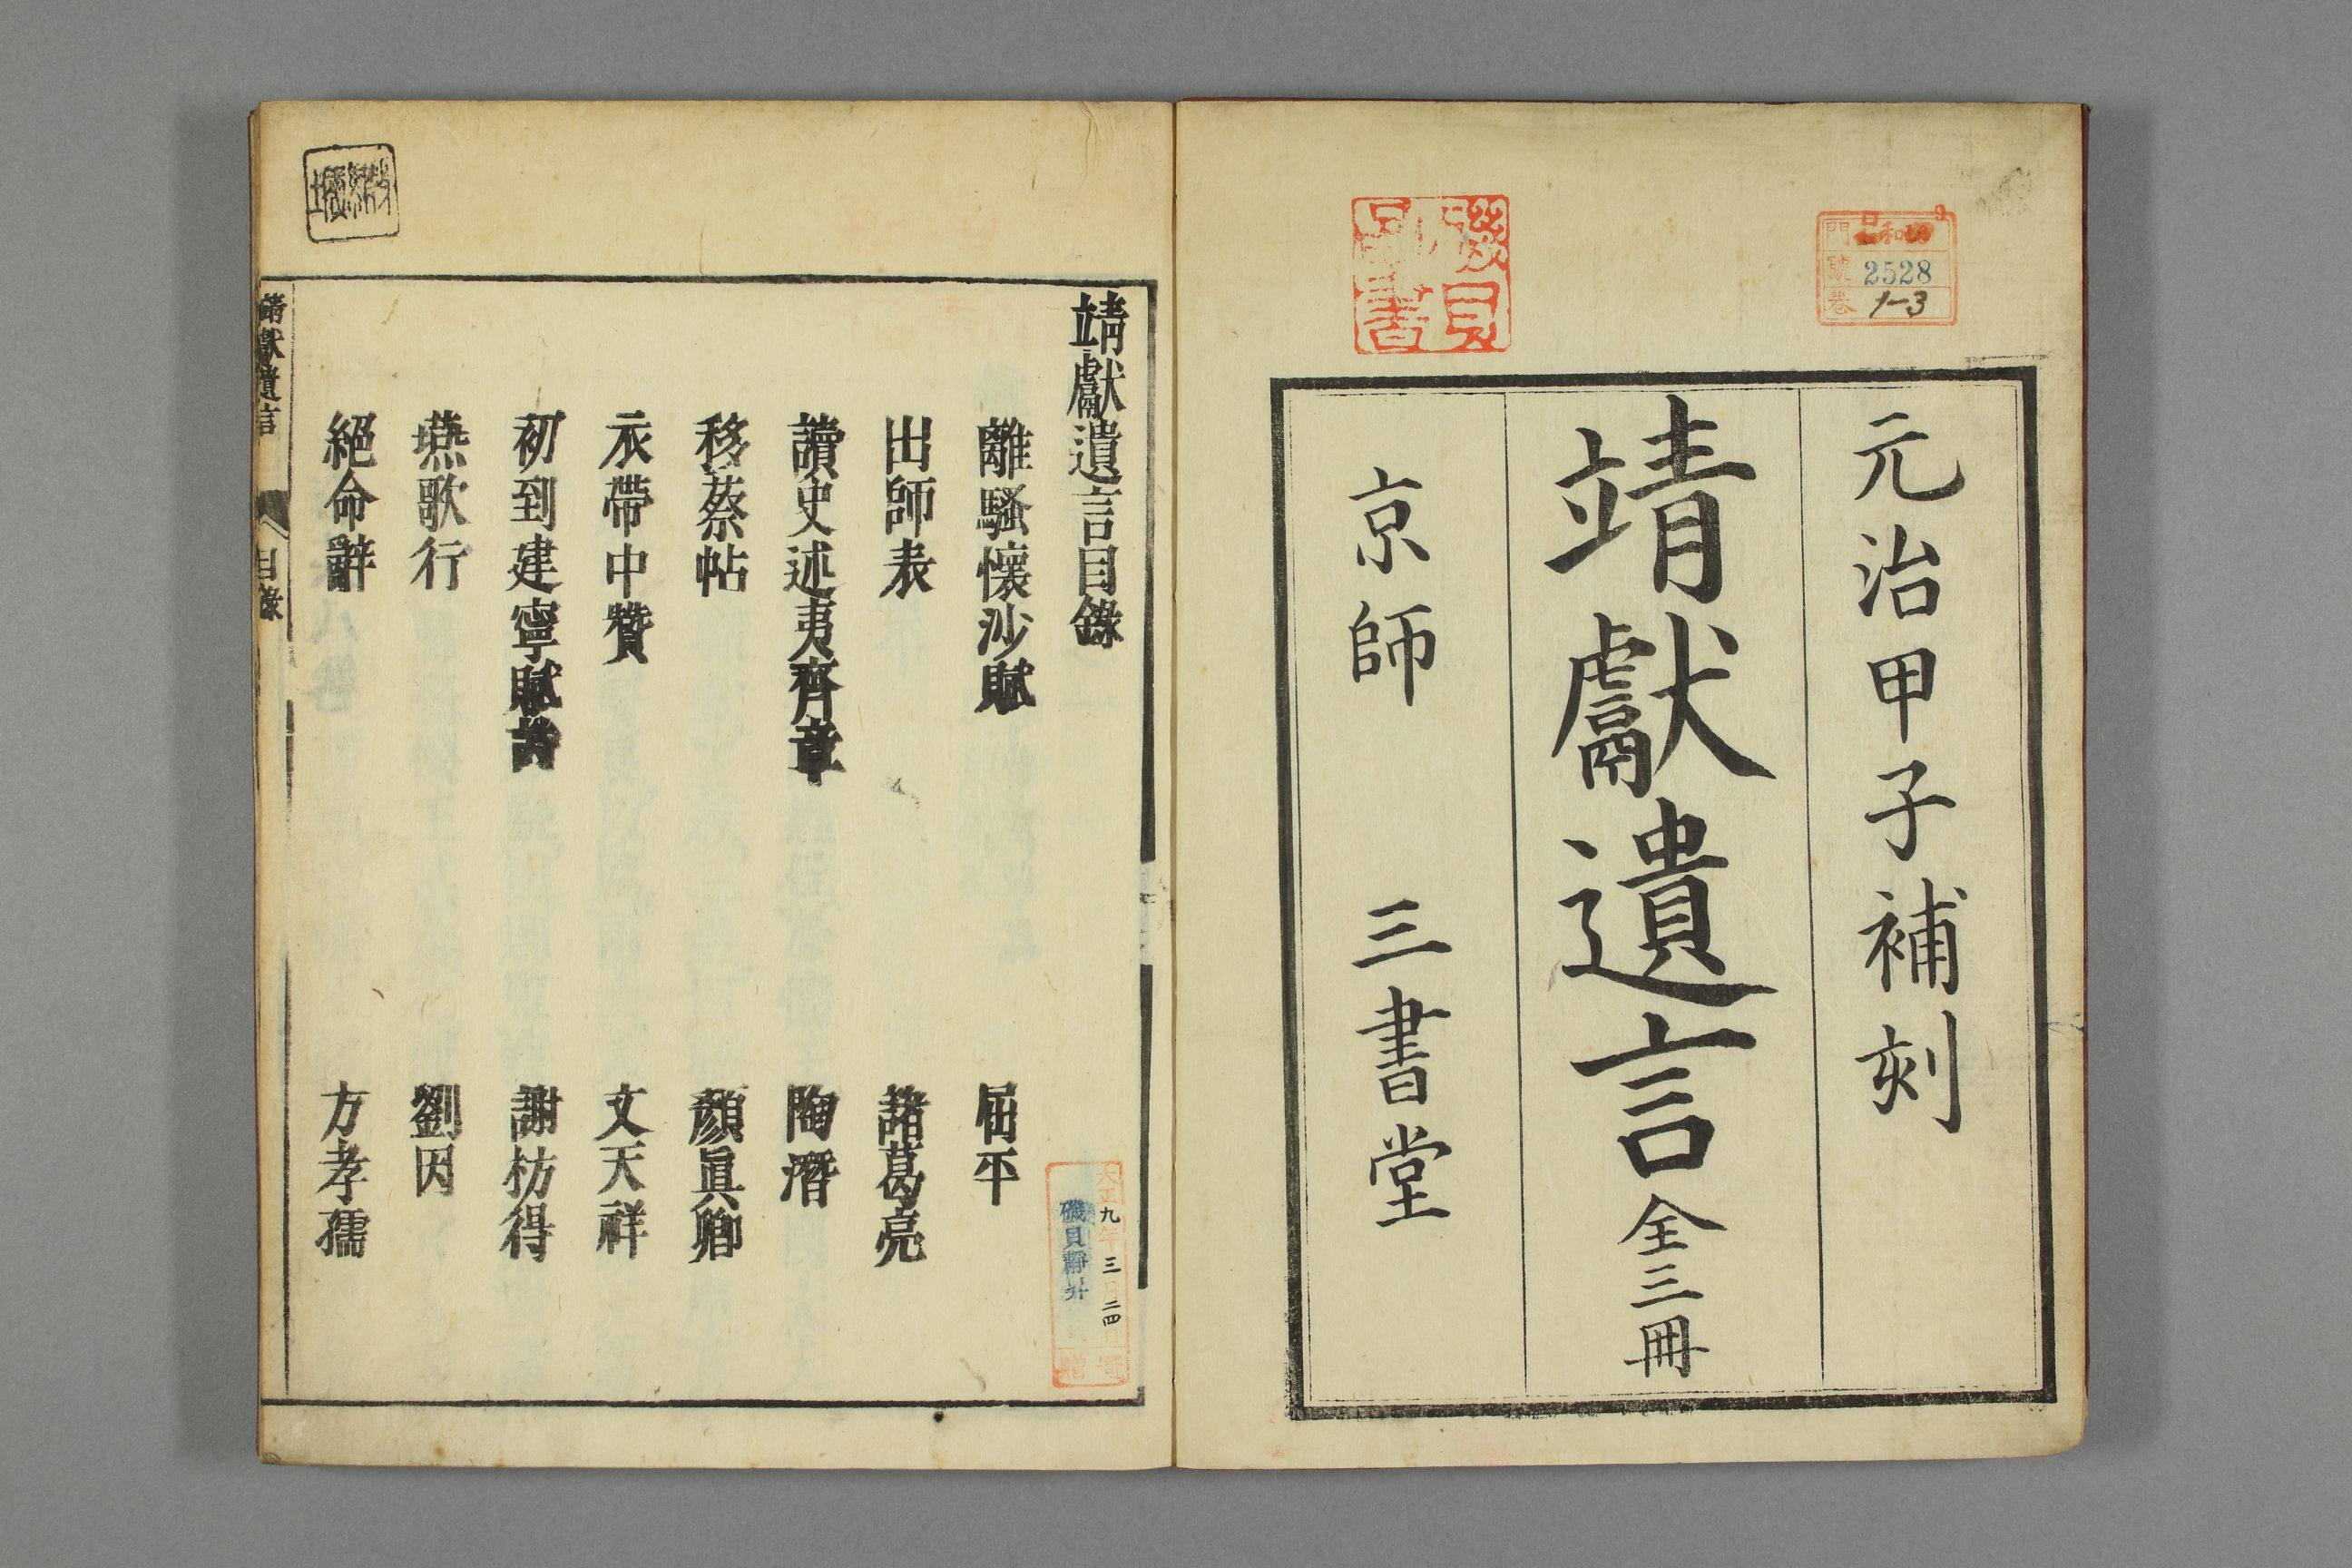 元治甲子補刻
靖獻遺言全三冊
京師 三書堂
門
號 2528
卷 1-3
靖獻遺言目錄
離騷懷沙賦 屈平
出師表 諸葛亮
讀史述夷齊章 陶潛
移蔡帖 顏眞卿
衣帶中贊 文天祥
初到建寧賦詩 謝枋得
燕歌行 劉因
絕命辭 方孝孺
靖獻遺言 目錄
大正九年三月二四日
磯貝靜